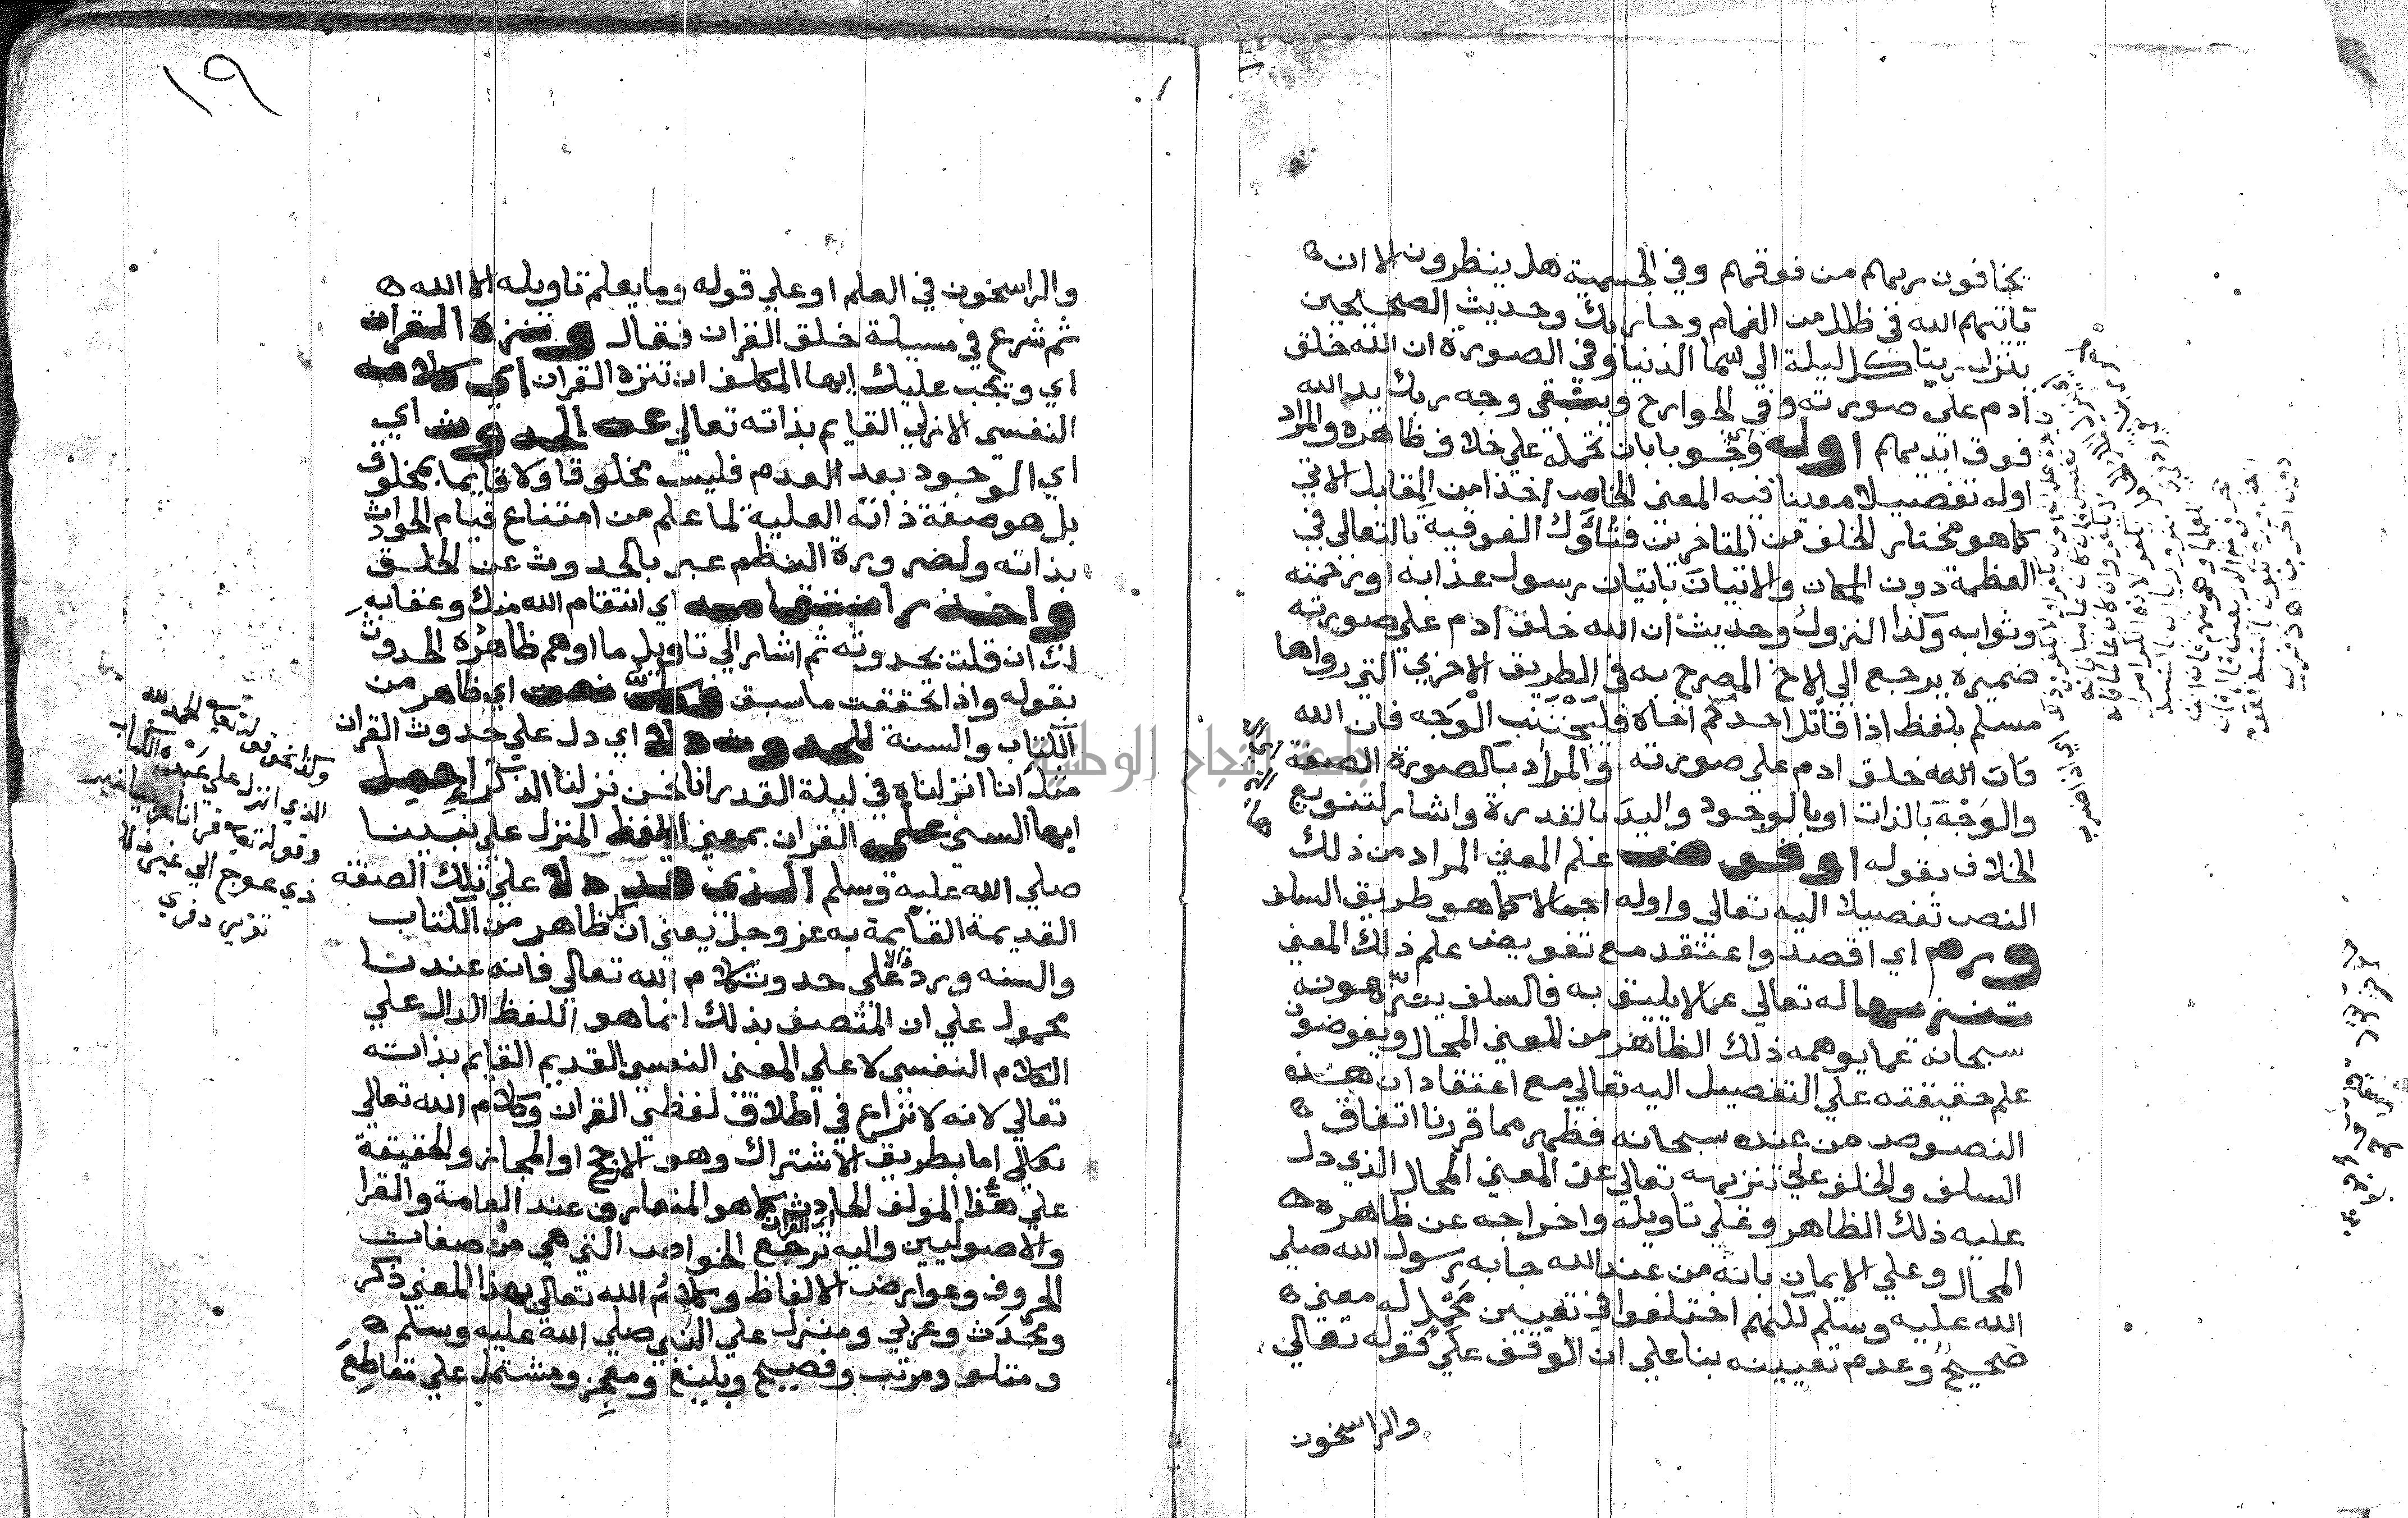 يخافون ربهم من فوقهم وفي الجسمية هل ينظرون الا ان
ياتيهم الله في ظلل من الغمام وجا ربك وحديث الصحيحين
ينزل ربنا كل ليلة الي سما الدنيا وفي الصورة ان الله خلق
ادم على صورته وفي الجوارح ويبقى وجه ربك يد الله
فوق ايديهم اوله وجوبا بان تحمله علي خلاف ظاهره والمراد
اوله تفصيلا معينا فيه المعنى الخاص اخذا من المقابل الاتي
كما هو مختار الخلف من المتاخرين فتاول الفوقية بالتعالي في
العظمة دون المكان والاتيان باتيان رسول عذابه او رحمته
وثوابه وكذا النزول وحديث ان الله خلق ادم علي صورته
ضميره يرجع الي الاخ المصرح به في الطريق الاخري التي رواها
مسلم بلفظ اذا قاتل احدكم اخاه فليجتنب الوجه فان الله
فان الله خلق ادم علي صورته والمراد بالصورة الصفة
والوجه بالذات او بالوجود واليد بالقدرة واشار لتنويع
الخلاف بقوله او فوض علم المعني المراد من ذلك
النص تفصيلا اليه تعالي واوله اجمالا كما هو طريق السلف
ورم اي اقصد واعتقد مع تفويض علم ذلك المعني
تنزيها له تعالي عما لا يليق به فالسلف ينزهونه
سبحانه عما يوهمه ذلك الظاهر من المعني المحال ويفوضون
علم حقيقته علي التفصيل اليه تعالي مع اعتقاد ان هذه
النصوص من عنده سبحانه فظهر مما قررنا اتفاق
السلف والخلف علي تنزيهه تعالي عن المعني المحال الذي دل
عليه ذلك الظاهر وعلي تاويله واخراجه عن ظاهره
المحال وعلي الايمان بانه من عند الله جا به رسول الله صلي
الله عليه وسلم لكنهم اختلفوا في تعيين محمل له معني
صحيح وعدم تعيينه بنا علي ان الوقف علي قوله تعالي
والراسخون
١٩
والراسخون في العلم او علي قوله وما يعلم تاويله الا الله
ثم شرع في مسيلة خلق القران فقال ونزه القران
اي ويجب عليك ايها المكلف ان تنزه القران اي كلامه
النفسي الازلي القايم بذاته تعالي عن الحدوث اي
اي الوجود بعد العدم فليس مخلوقا ولا قايما بمخلوق
بل هو صفة ذاته العلية لما علم من امتناع قيام الحوادث
بذاته ولضرورة النظم عبر بالحدوث عن الخلق
واحذر انتقامه اي انتقام الله منك وعقابه
لك ان قلت بحدوثه ثم اشار الي تاويل ما اوهم ظاهره الحدوث
بقوله واذا تحققت ما سبق فكل نص اي ظاهر من
الكتاب والسنة للحدوث دلا اي دل علي حدوث القران
مثل انا انزلناه في ليلة القدر انا نحن نزلنا الذكر احمل
ايها السني علي القران بمعني اللفظ المنزل علي نبينا
صلي الله عليه وسلم الذي قد دلا علي تلك الصفة
القديمة القايمة به عز وجل يعني ان كل ظاهر من الكتاب
والسنه ورد دالا علي حدوث كلام الله تعالي فانه عندنا
محمول علي ان المتصف بذلك انما هو اللفظ الدال علي
الكلام النفسي لا علي المعني النفسي القديم القايم بذاته
تعالي لانه لا نزاع في اطلاق لفظي القران وكلام الله تعالي
تعالي اما بطريق الاشتراك وهو الارجح او المجاز والحقيقة
علي هذا المولف الحادث كما هو المتعارف عند العامة والقرا
والاصوليين واليه ترجع الخواص التي هي من صفات
اي القران
الحروف وعوارض الالفاظ وكلام الله تعالي بهذا المعني ذكر
ومحدث وعربي ومنزل علي النبي صلي الله عليه وسلم
ومتلو ومرتب وفصيح وبليغ ومعجز ومشتمل علي مقاطع
وكذا نحو قوله تعالي الحمد لله
الذي انزل علي عبده الكتاب
وقوله تعالي قرانا عربيا غير
ذي عوج الي غير ذلك